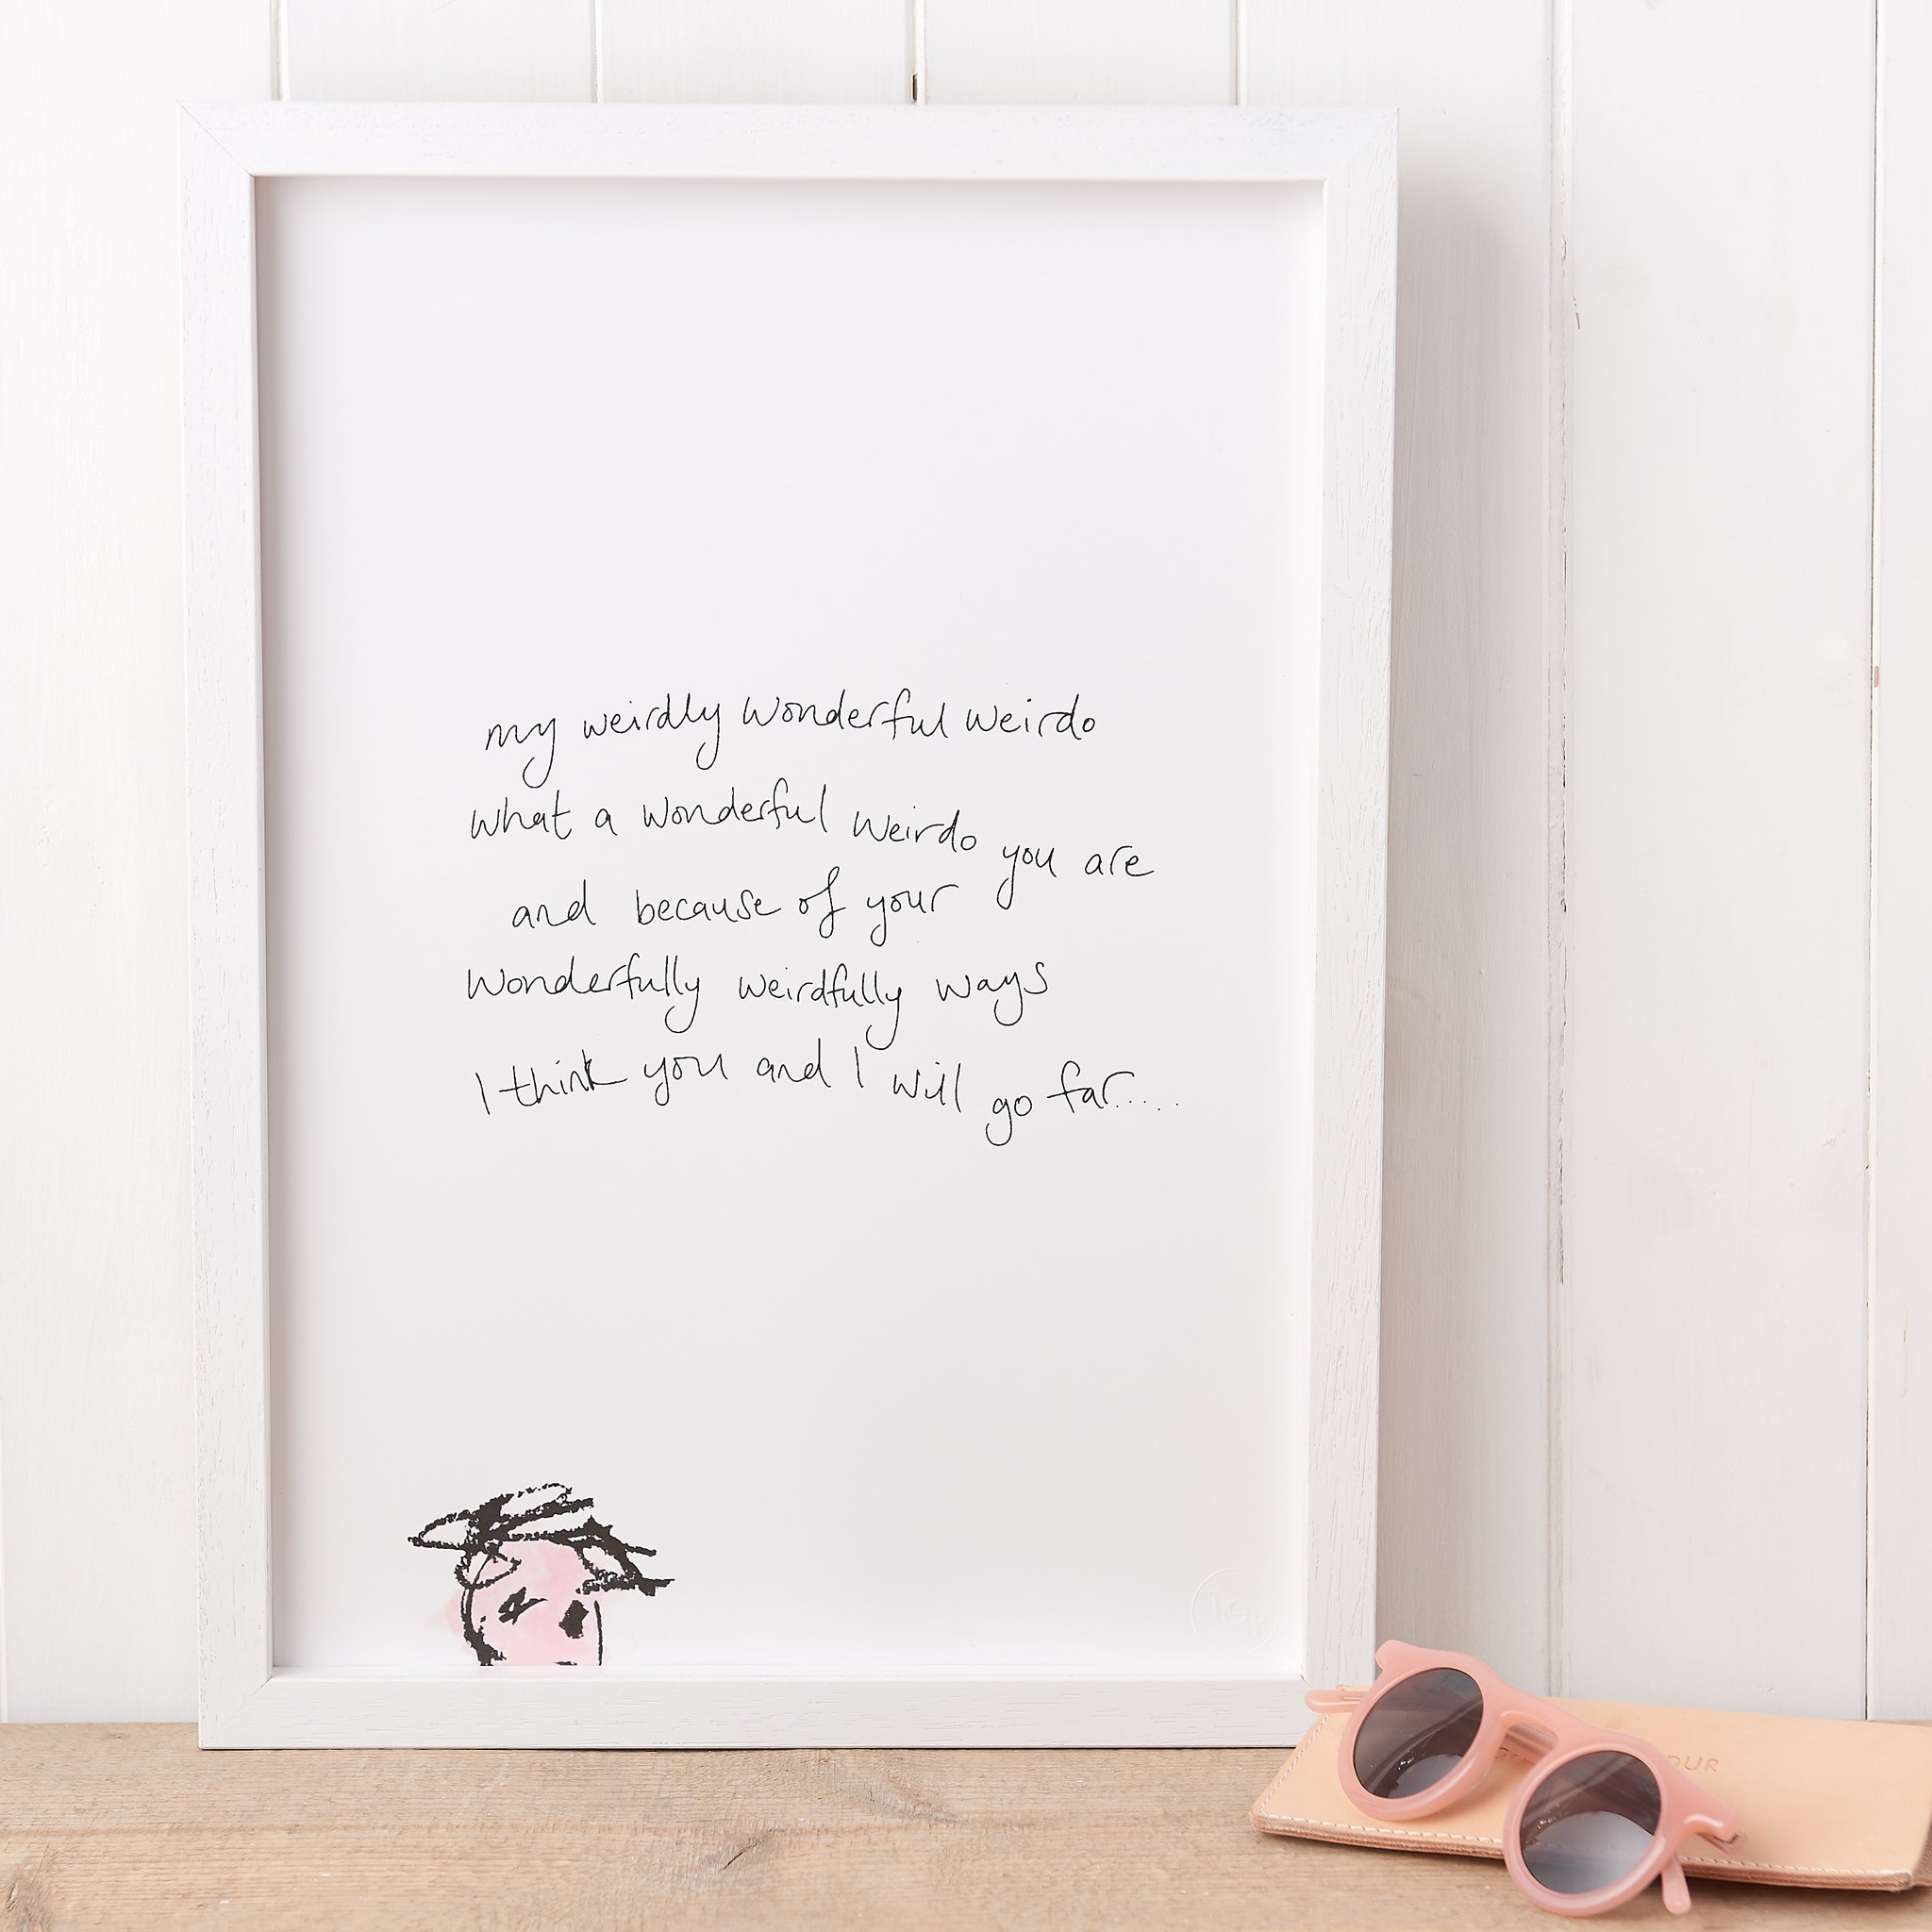 my weirdly wonderful weirdo
what a wonderful weirdo you are
and because of your
wonderfully weirdfully ways
I think you and I will go far.....
OUR